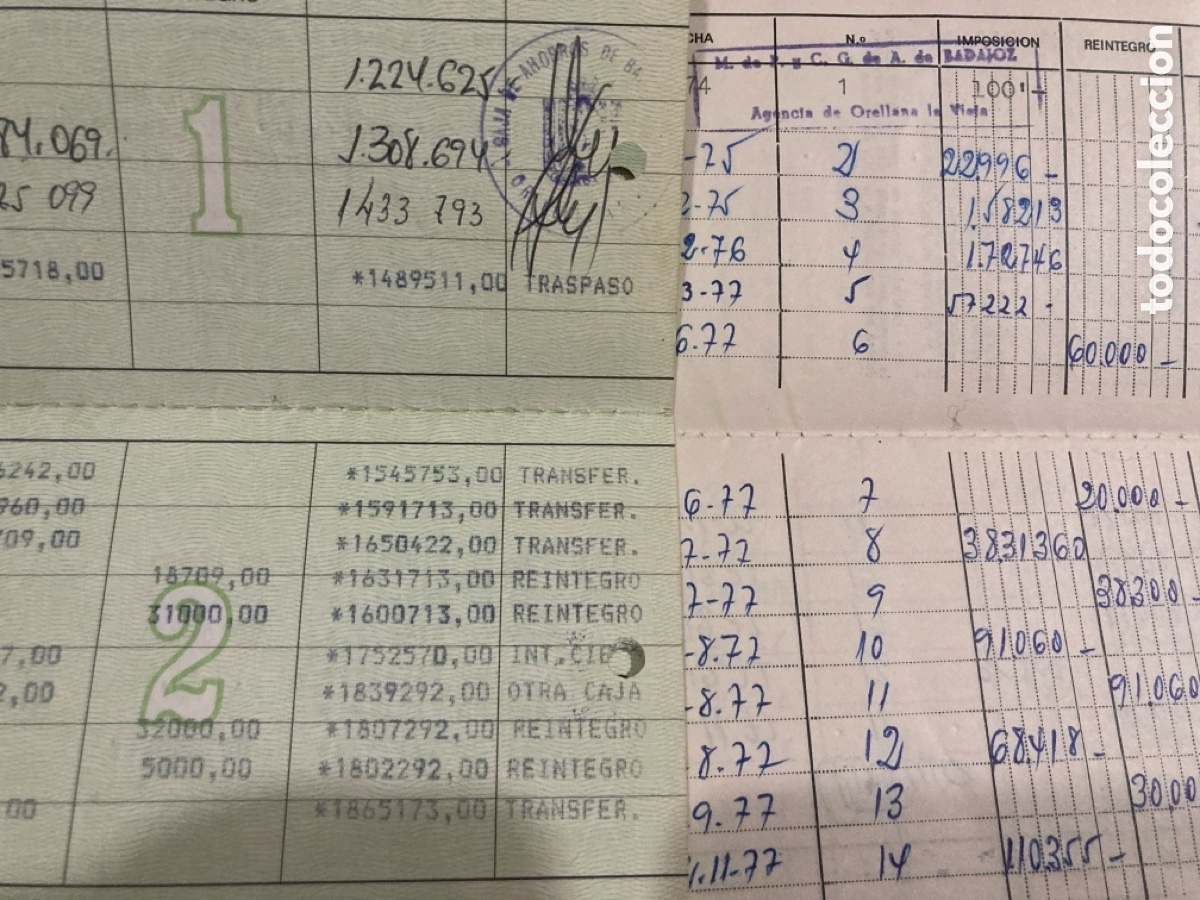 1.224.625
84.069. 1.308.694
25 099 1433 793
5718,00 *1489511,00 TRASPASO
1
6242,00 *1545753,00 TRANSFER.
960,00 *1591713,00 TRANSFER.
709,00 *1650422,00 TRANSFER.
18709,00 *1631713,00 REINTEGRO
31000,00 *1600713,00 REINTEGRO
7,00 *1752570,00 INT.
2
2,00 *1839292,00 OTRA CAJA
32000,00 *1807292,00 REINTEGRO
5000,00 *1802292,00 REINTEGRO
00 *1865173,00 TRANSFER.
CAJA DE AHORROS DE BA
CHA N.o IMPOSICION REINTEGRO
M. de P. y C. G. de A. de BADAJOZ
74 1 100'-
Agencia de Orellana la Vieja
-75 2 22996 -
2-75 3 1.58213
2-76 4 1.72746
3-77 5 57222 -
6.77 6 60.000 -
6-77 7 20.000 -
7-77 8 3831360
7-77 9 38300 -
-8.77 10 91060 -
-8.77 11 91.060
8.77 12 68.418 -
9.77 13 3000
1.11-77 14 110355 -
todocoleccion